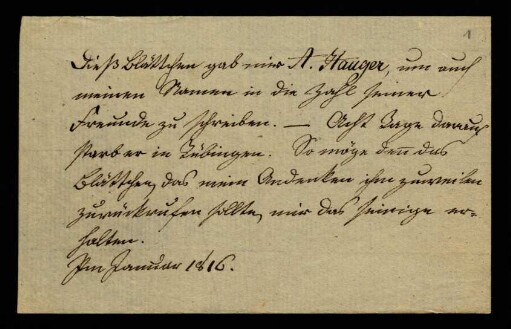 1
Dieß Blättchen gab mir A. Hauger, um auch
meinen Namen in die Zahl seiner
Freunde zu schreiben. — Acht Tage darauf
starb er in Tübingen. So möge den̅ das
Blättchen, das mein Andenken ihm zuweilen
zurückrufen sollte, mir das seinige er-
halten.
Im Januar 1816.